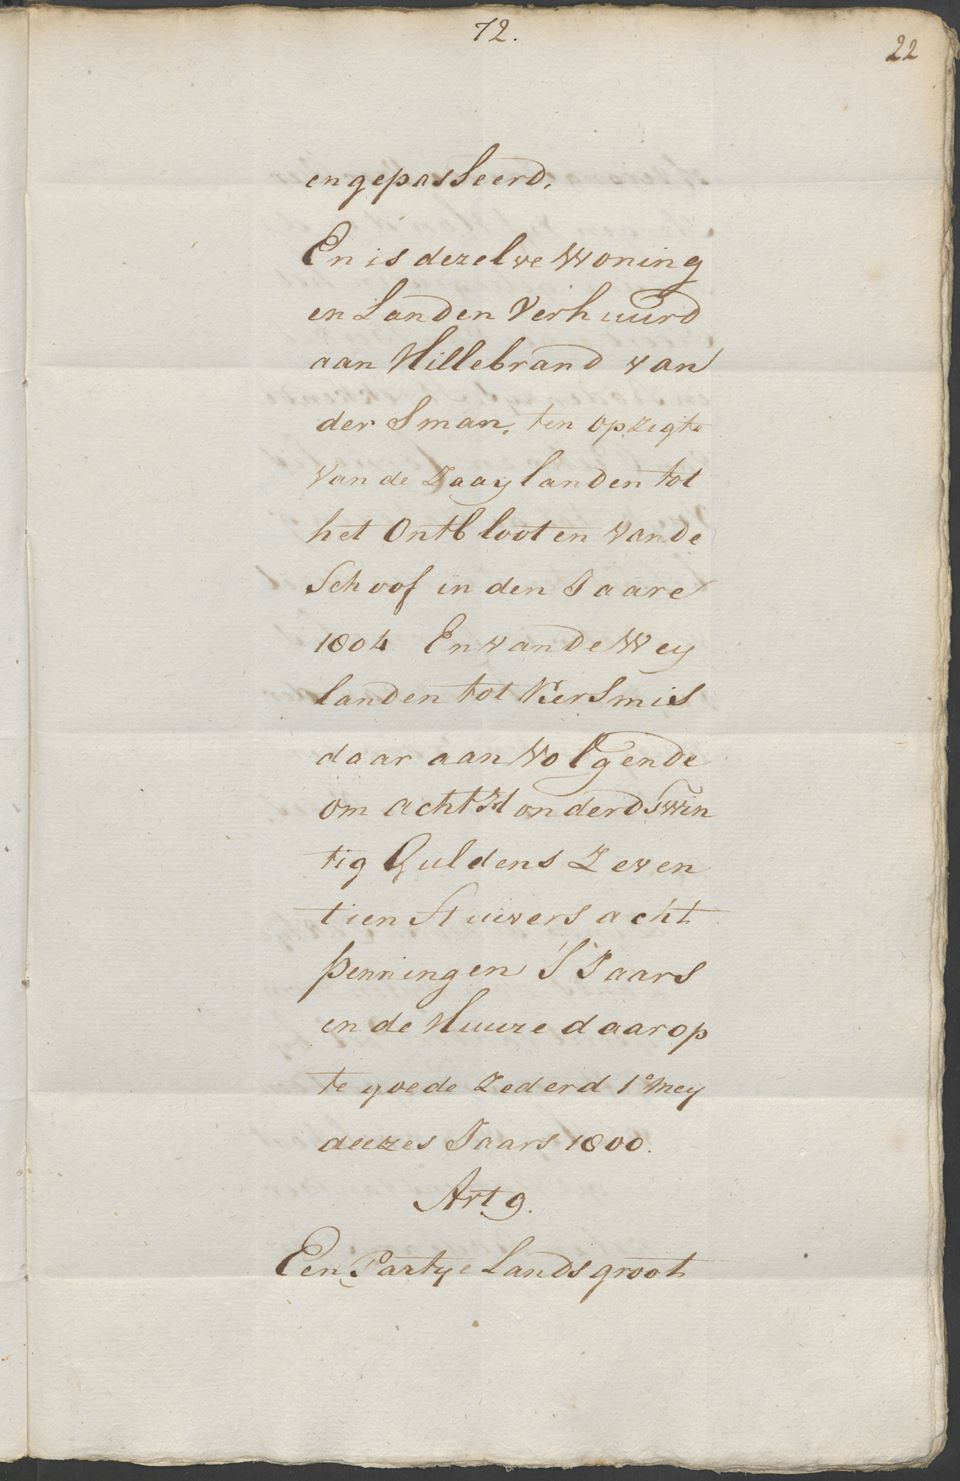 72.
22
en gepasseerd.
En is dezelve Woning
en Landen Verhuurd
aan Hillebrand van
der Sman, ten opzigte
van de Zaaylanden tot
het Ontblooten van de
Schoof in den Jaare
1804 En van de Wey
landen tot Kersmis
daar aan volgende
om acht Honderd Twin
tig Guldens Zeven
tien Stuivers acht
penningen 'S Jaars
en de Huure daar op
te goede Zederd 1o Mey
deezes Jaars 1800.
Art 9.
Een Partye Lands groot